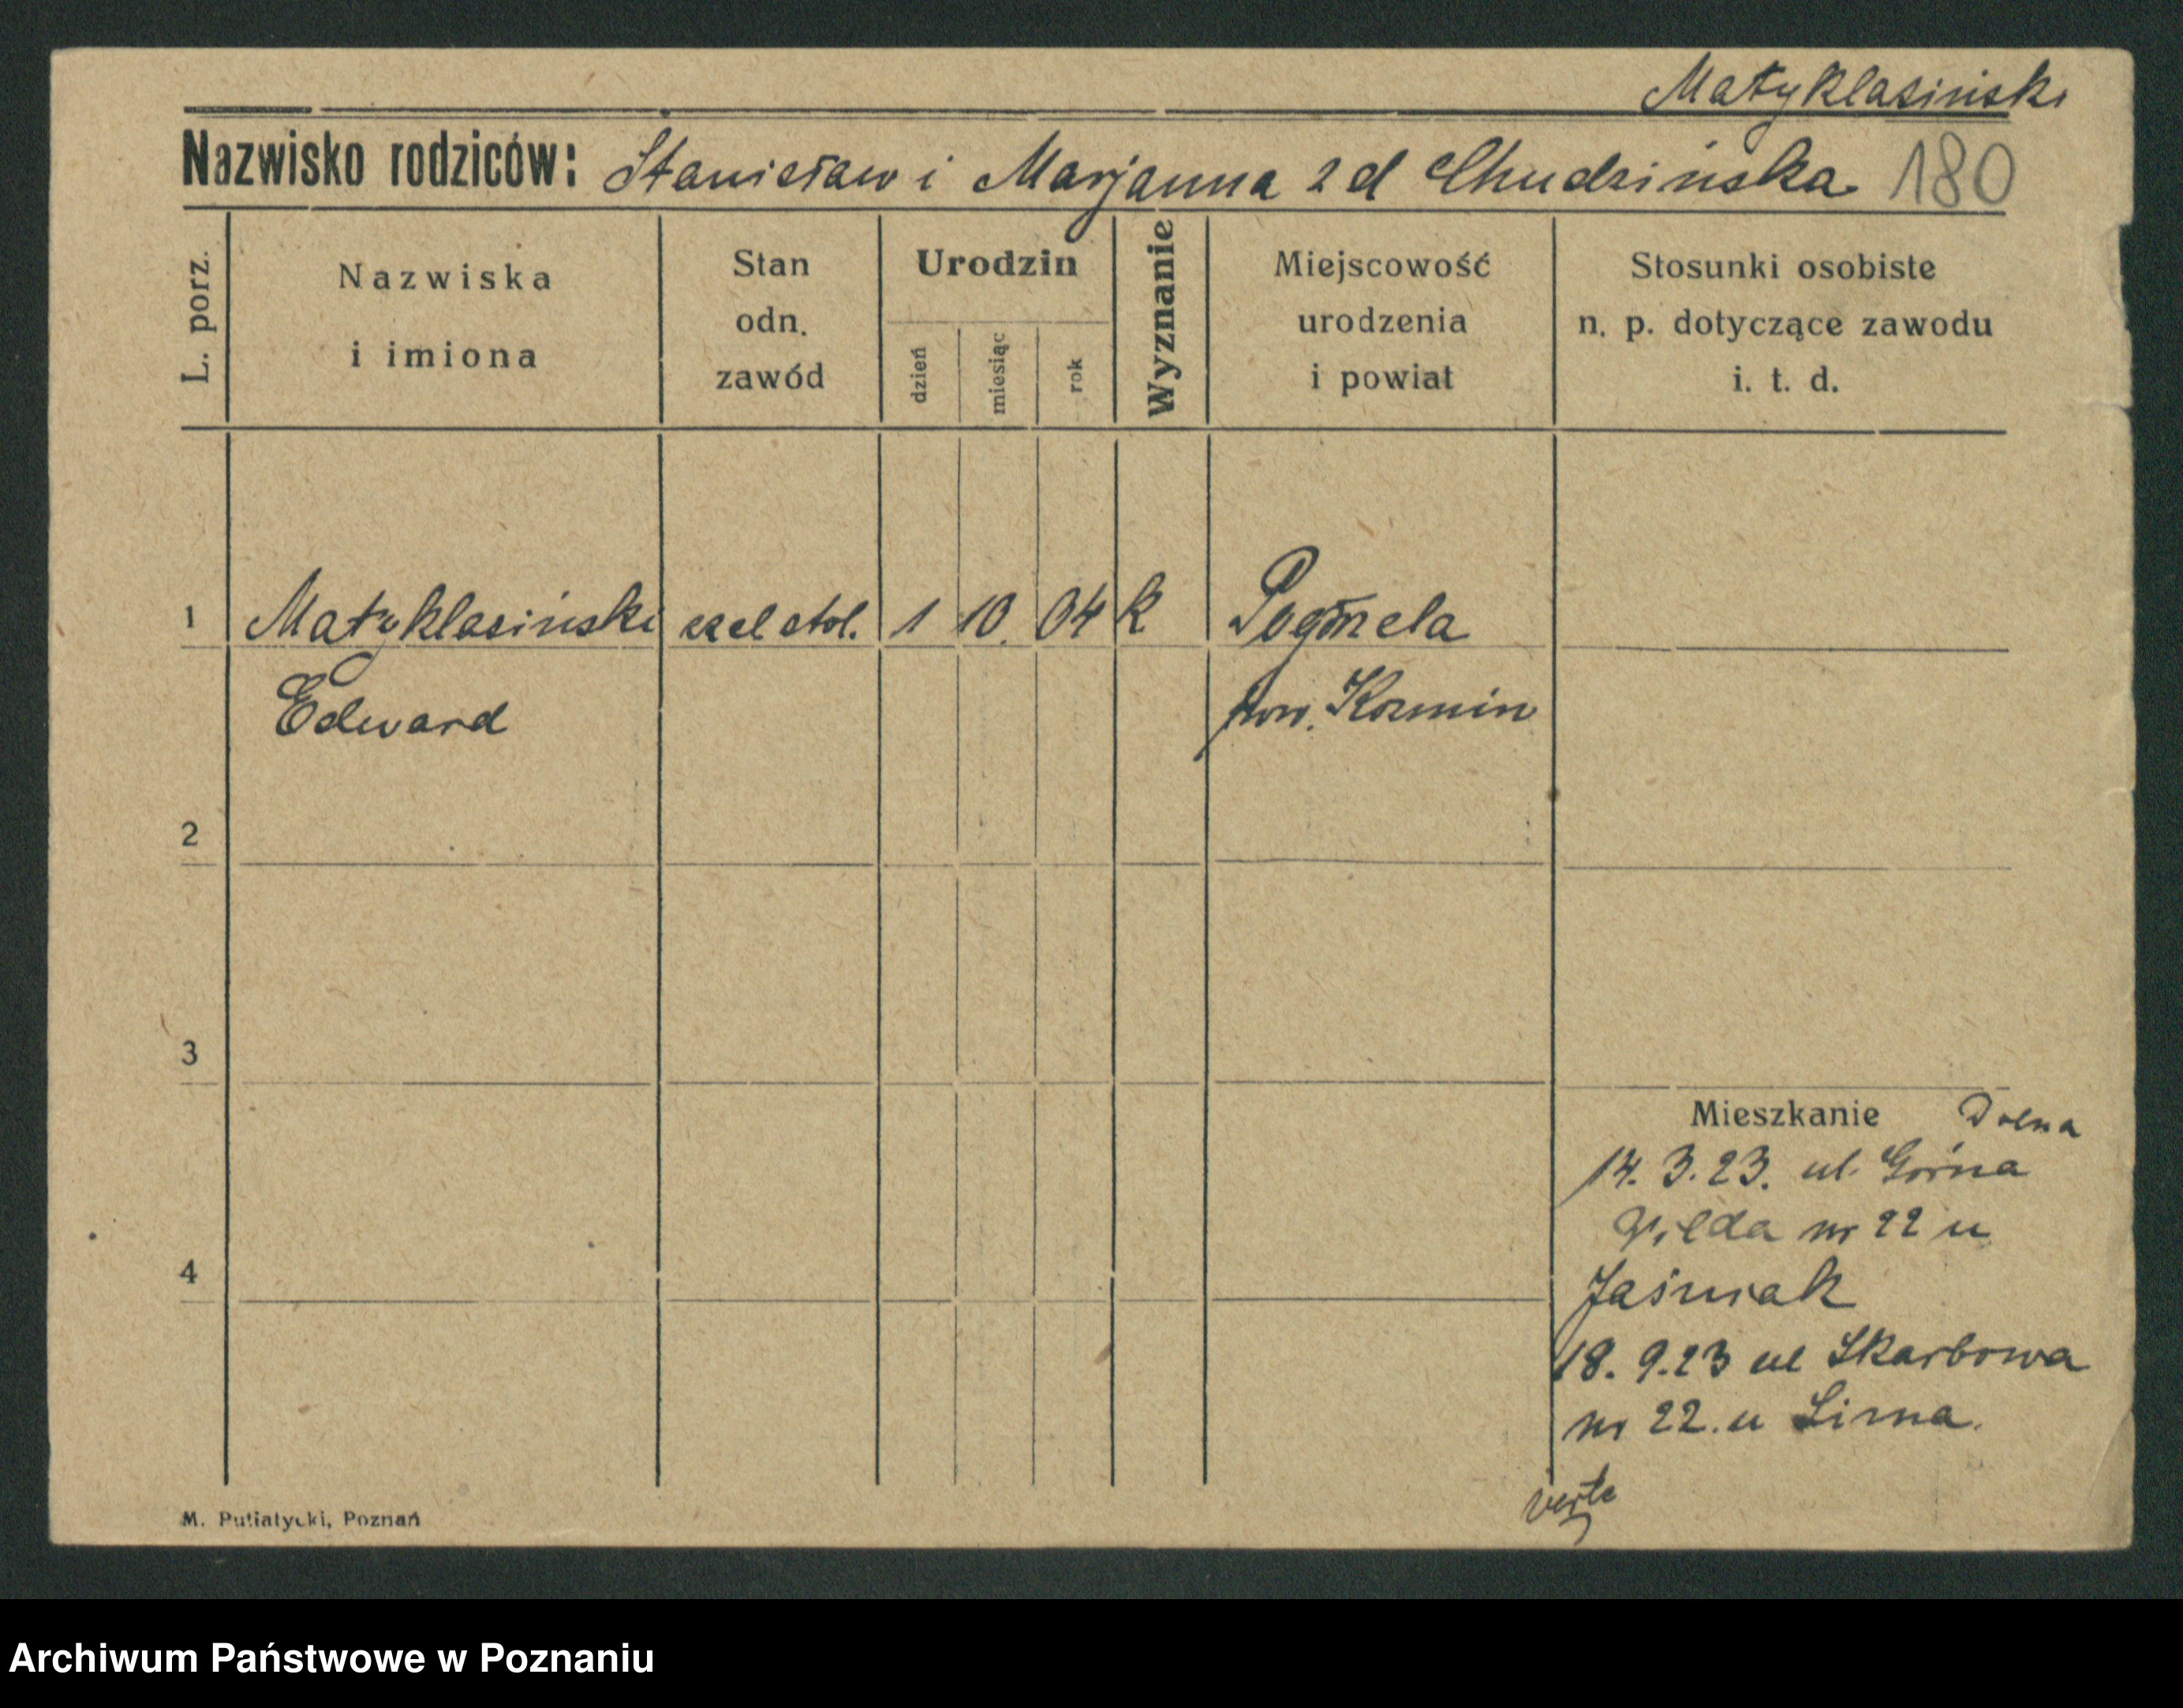 Matyklasiński
Nazwisko rodziców: Stanisław i Marjanna z d Chudzińska 180
L. porz.
Nazwiska
i imiona
Stan
odn.
zawód
Urodzin
dzień
miesiąc
rok
Wyznanie
Miejscowość
urodzenia
i powiat
Stosunki osobiste
n. p. dotyczące zawodu
i. t. d.
1 Matyklasiński czel stol. 1 10. 04 k
Edward pow. Kozmin
2
3
Mieszkanie Dolna
14. 3. 23. ul. Górna
Wilda nr 22 u
4
Jaśniak
18. 9. 23 ul Skarbowa
nr 22. u
verte
M. Putiatycki, Poznań
Archiwum Państwowe w Poznaniu